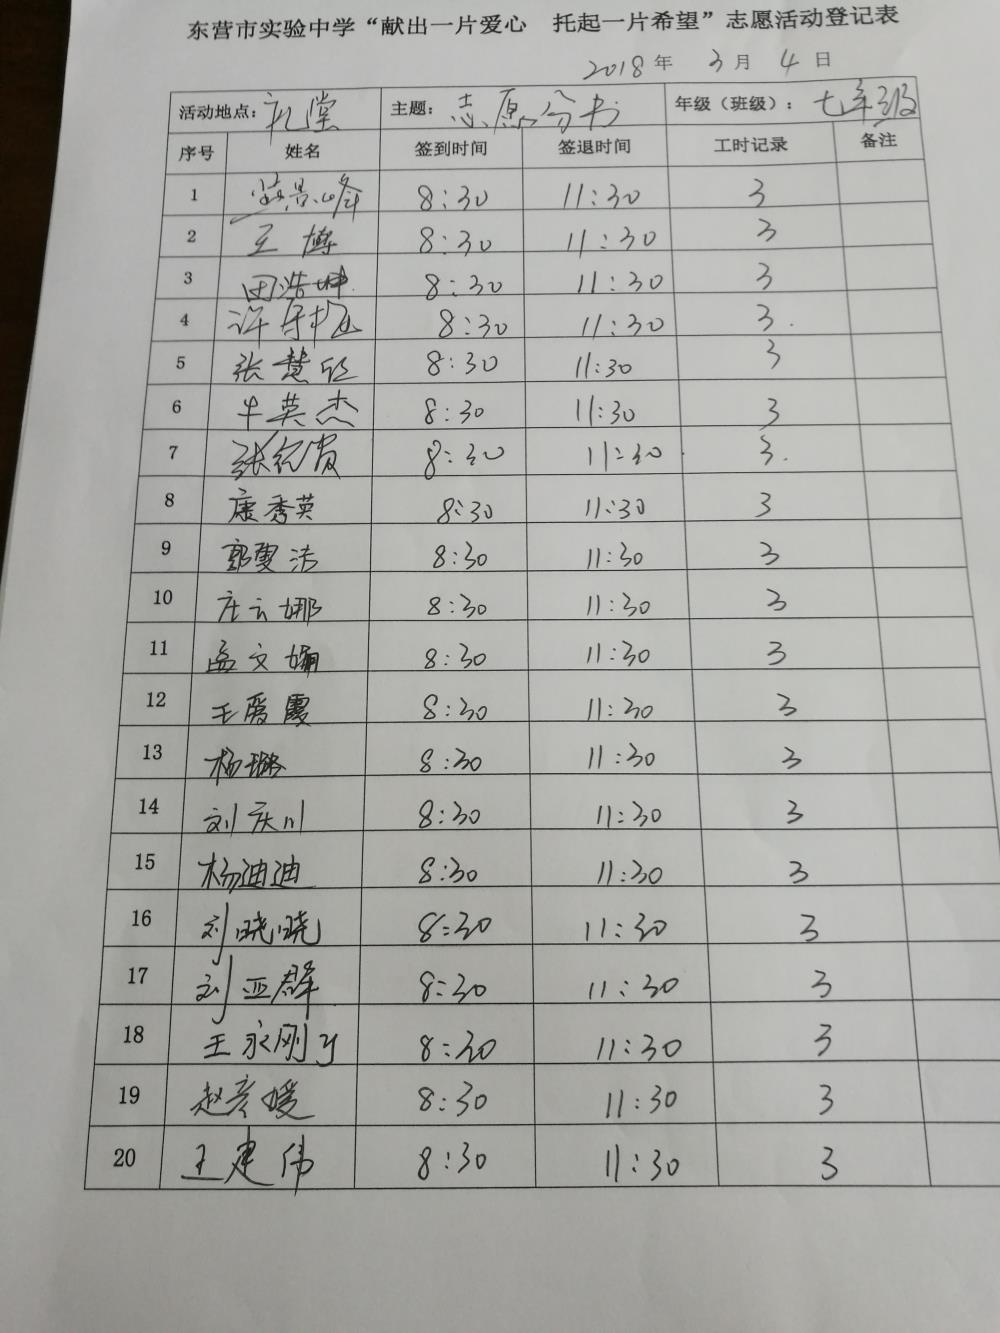 东营市实验中学“献出一片爱心 托起一片希望”志愿活动登记表
2018年 3月 4日
活动地点：礼堂 主题：志愿分书 年级（班级）：七年级
序号 姓名 签到时间 签退时间 工时记录 备注
1 8:30 11:30 3
2 王博 8:30 11:30 3
3 田浩坤 8:30 11:30 3
4 8:30 11:30 3
5 张慧欣 8:30 11:30 3
6 牛英杰 8:30 11:30 3
7 张纪贵 8:30 11:30 3
8 康秀英 8:30 11:30 3
9 郭雯洁 8:30 11:30 3
10 庄云娜 8:30 11:30 3
11 孟文娟 8:30 11:30 3
12 王爱霞 8:30 11:30 3
13 杨璐 8:30 11:30 3
14 刘庆川 8:30 11:30 3
15 杨迪迪 8:30 11:30 3
16 刘晓晓 8:30 11:30 3
17 刘亚群 8:30 11:30 3
18 王永刚 8:30 11:30 3
19 赵彦媛 8:30 11:30 3
20 王建伟 8:30 11:30 3